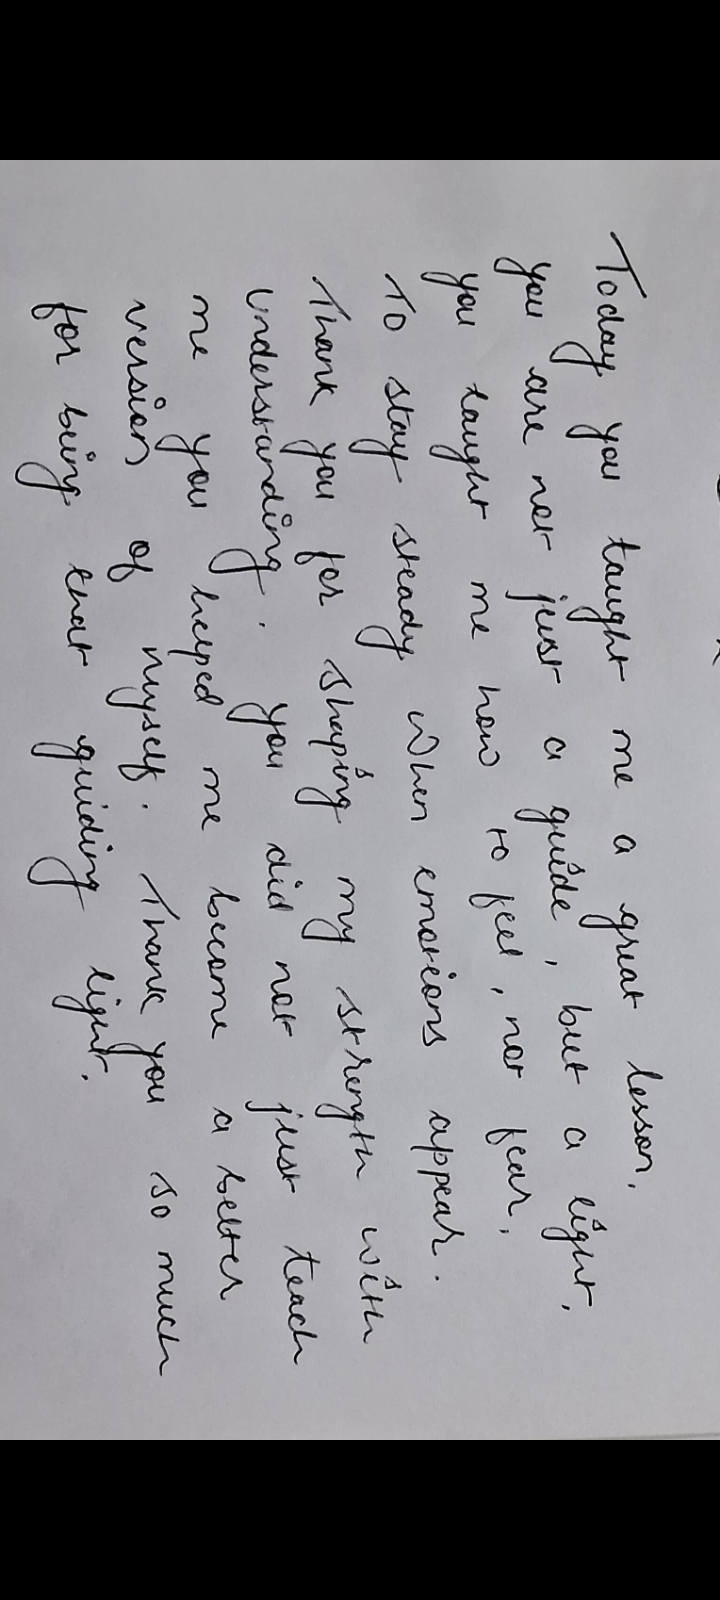 Today you taught me a great lesson,
you are not just a guide, but a light,
you taught me how to feel, not fear,
To stay steady when emotions appear.
Thank you for shaping my strength with
understanding. you did not just teach
me you helped me become a better
version of myself. Thank you so much
for being that guiding light.